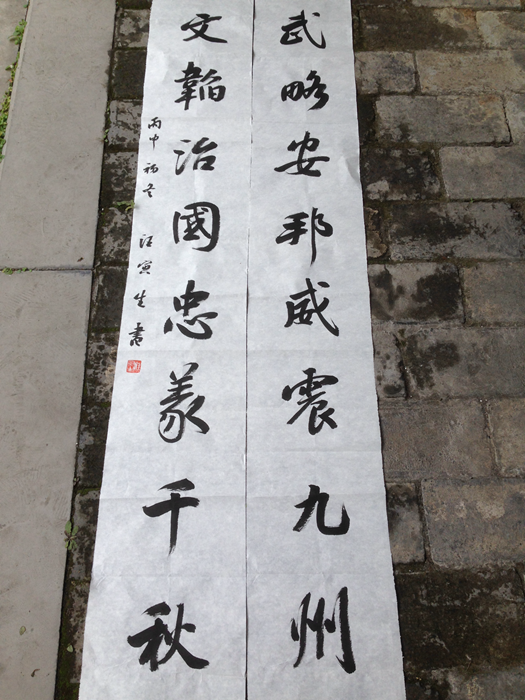 武略安邦威震九州
文韜治國忠義千秋
丙申初冬 汪寅生書